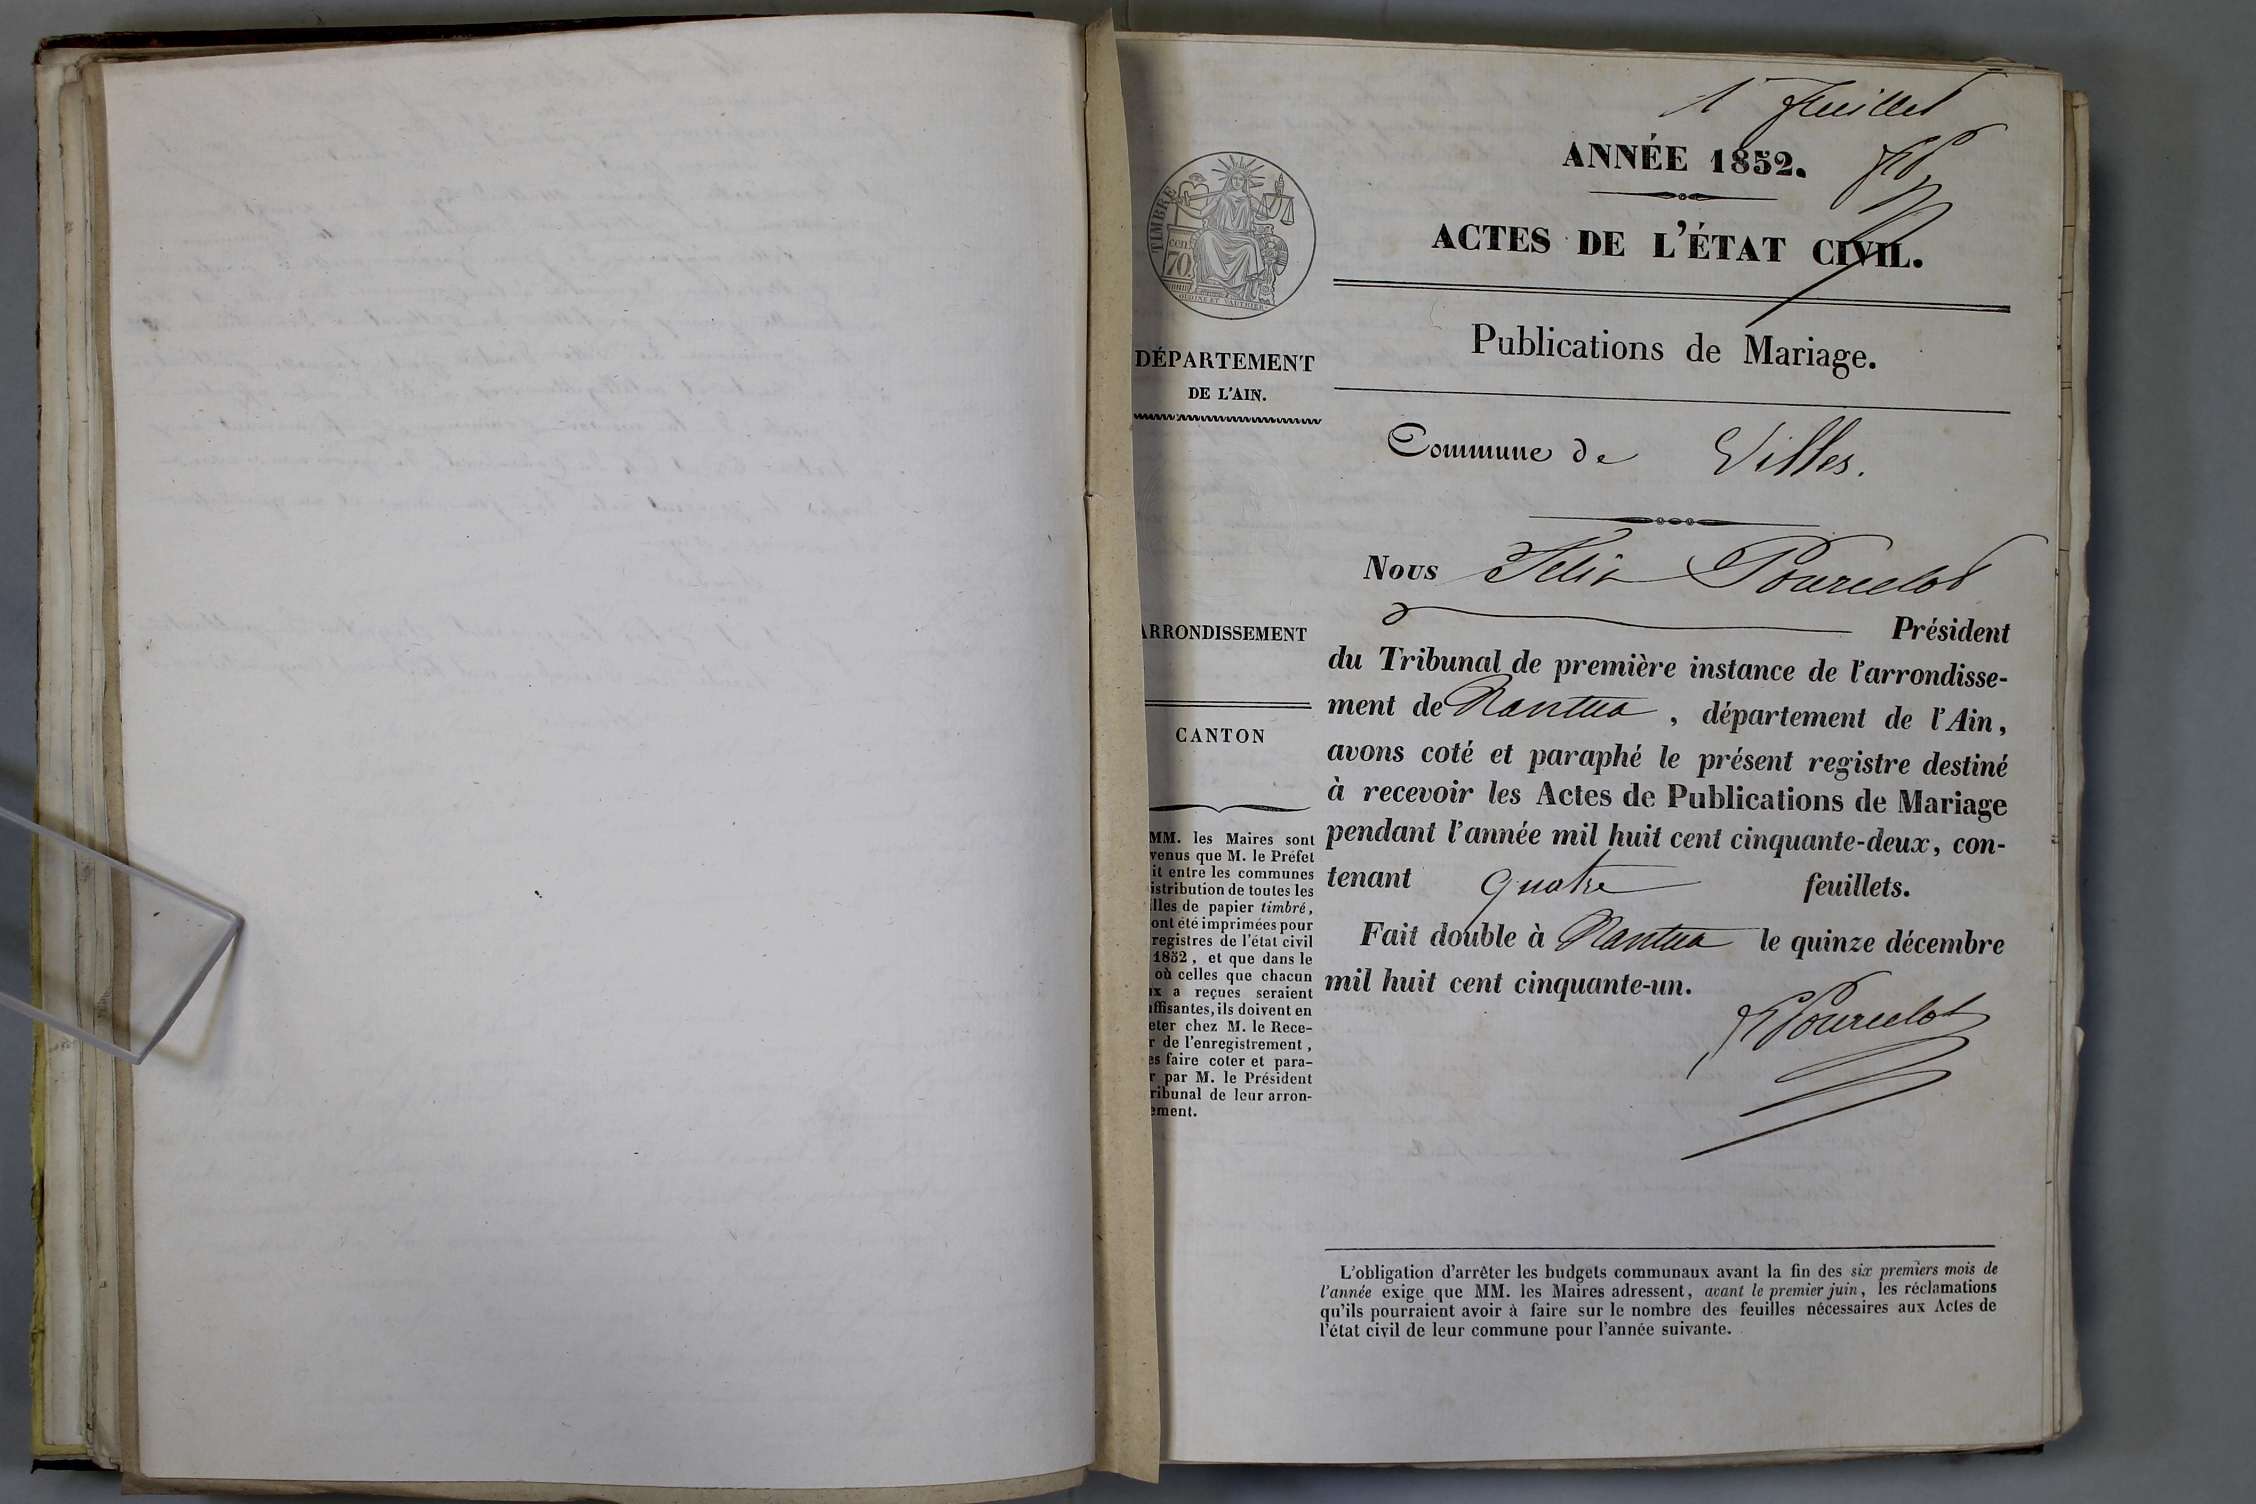 1er feuillet
ANNÉE 1852.
ACTES DE L'ÉTAT CIVIL.
Publications de Mariage.
Commune de Villes.
Nous Félix Pourcelot
Président
du Tribunal de première instance de l'arrondisse-
ment de Nantua, département de l'Ain,
avons coté et paraphé le présent registre destiné
à recevoir les Actes de Publications de Mariage
pendant l'année mil huit cent cinquante-deux, con-
tenant quatre feuillets.
Fait double à Nantua le quinze décembre
mil huit cent cinquante-un.
Pourcelot
TIMBRE
70 cen.
DÉPARTEMENT
DE L'AIN.
ARRONDISSEMENT
CANTON
MM. les Maires sont
venus que M. le Préfet
it entre les communes
istribution de toutes les
illes de papier timbré,
ont été imprimées pour
registres de l'état civil
1852, et que dans le
où celles que chacun
ux a reçues seraient
uffisantes, ils doivent en
eter chez M. le Rece-
r de l'enregistrement,
es faire coter et para-
r par M. le Président
ribunal de leur arron-
ement.
L'obligation d'arrêter les budgets communaux avant la fin des six premiers mois de
l'année exige que MM. les Maires adressent, avant le premier juin, les réclamations
qu'ils pourraient avoir à faire sur le nombre des feuilles nécessaires aux Actes de
l'état civil de leur commune pour l'année suivante.